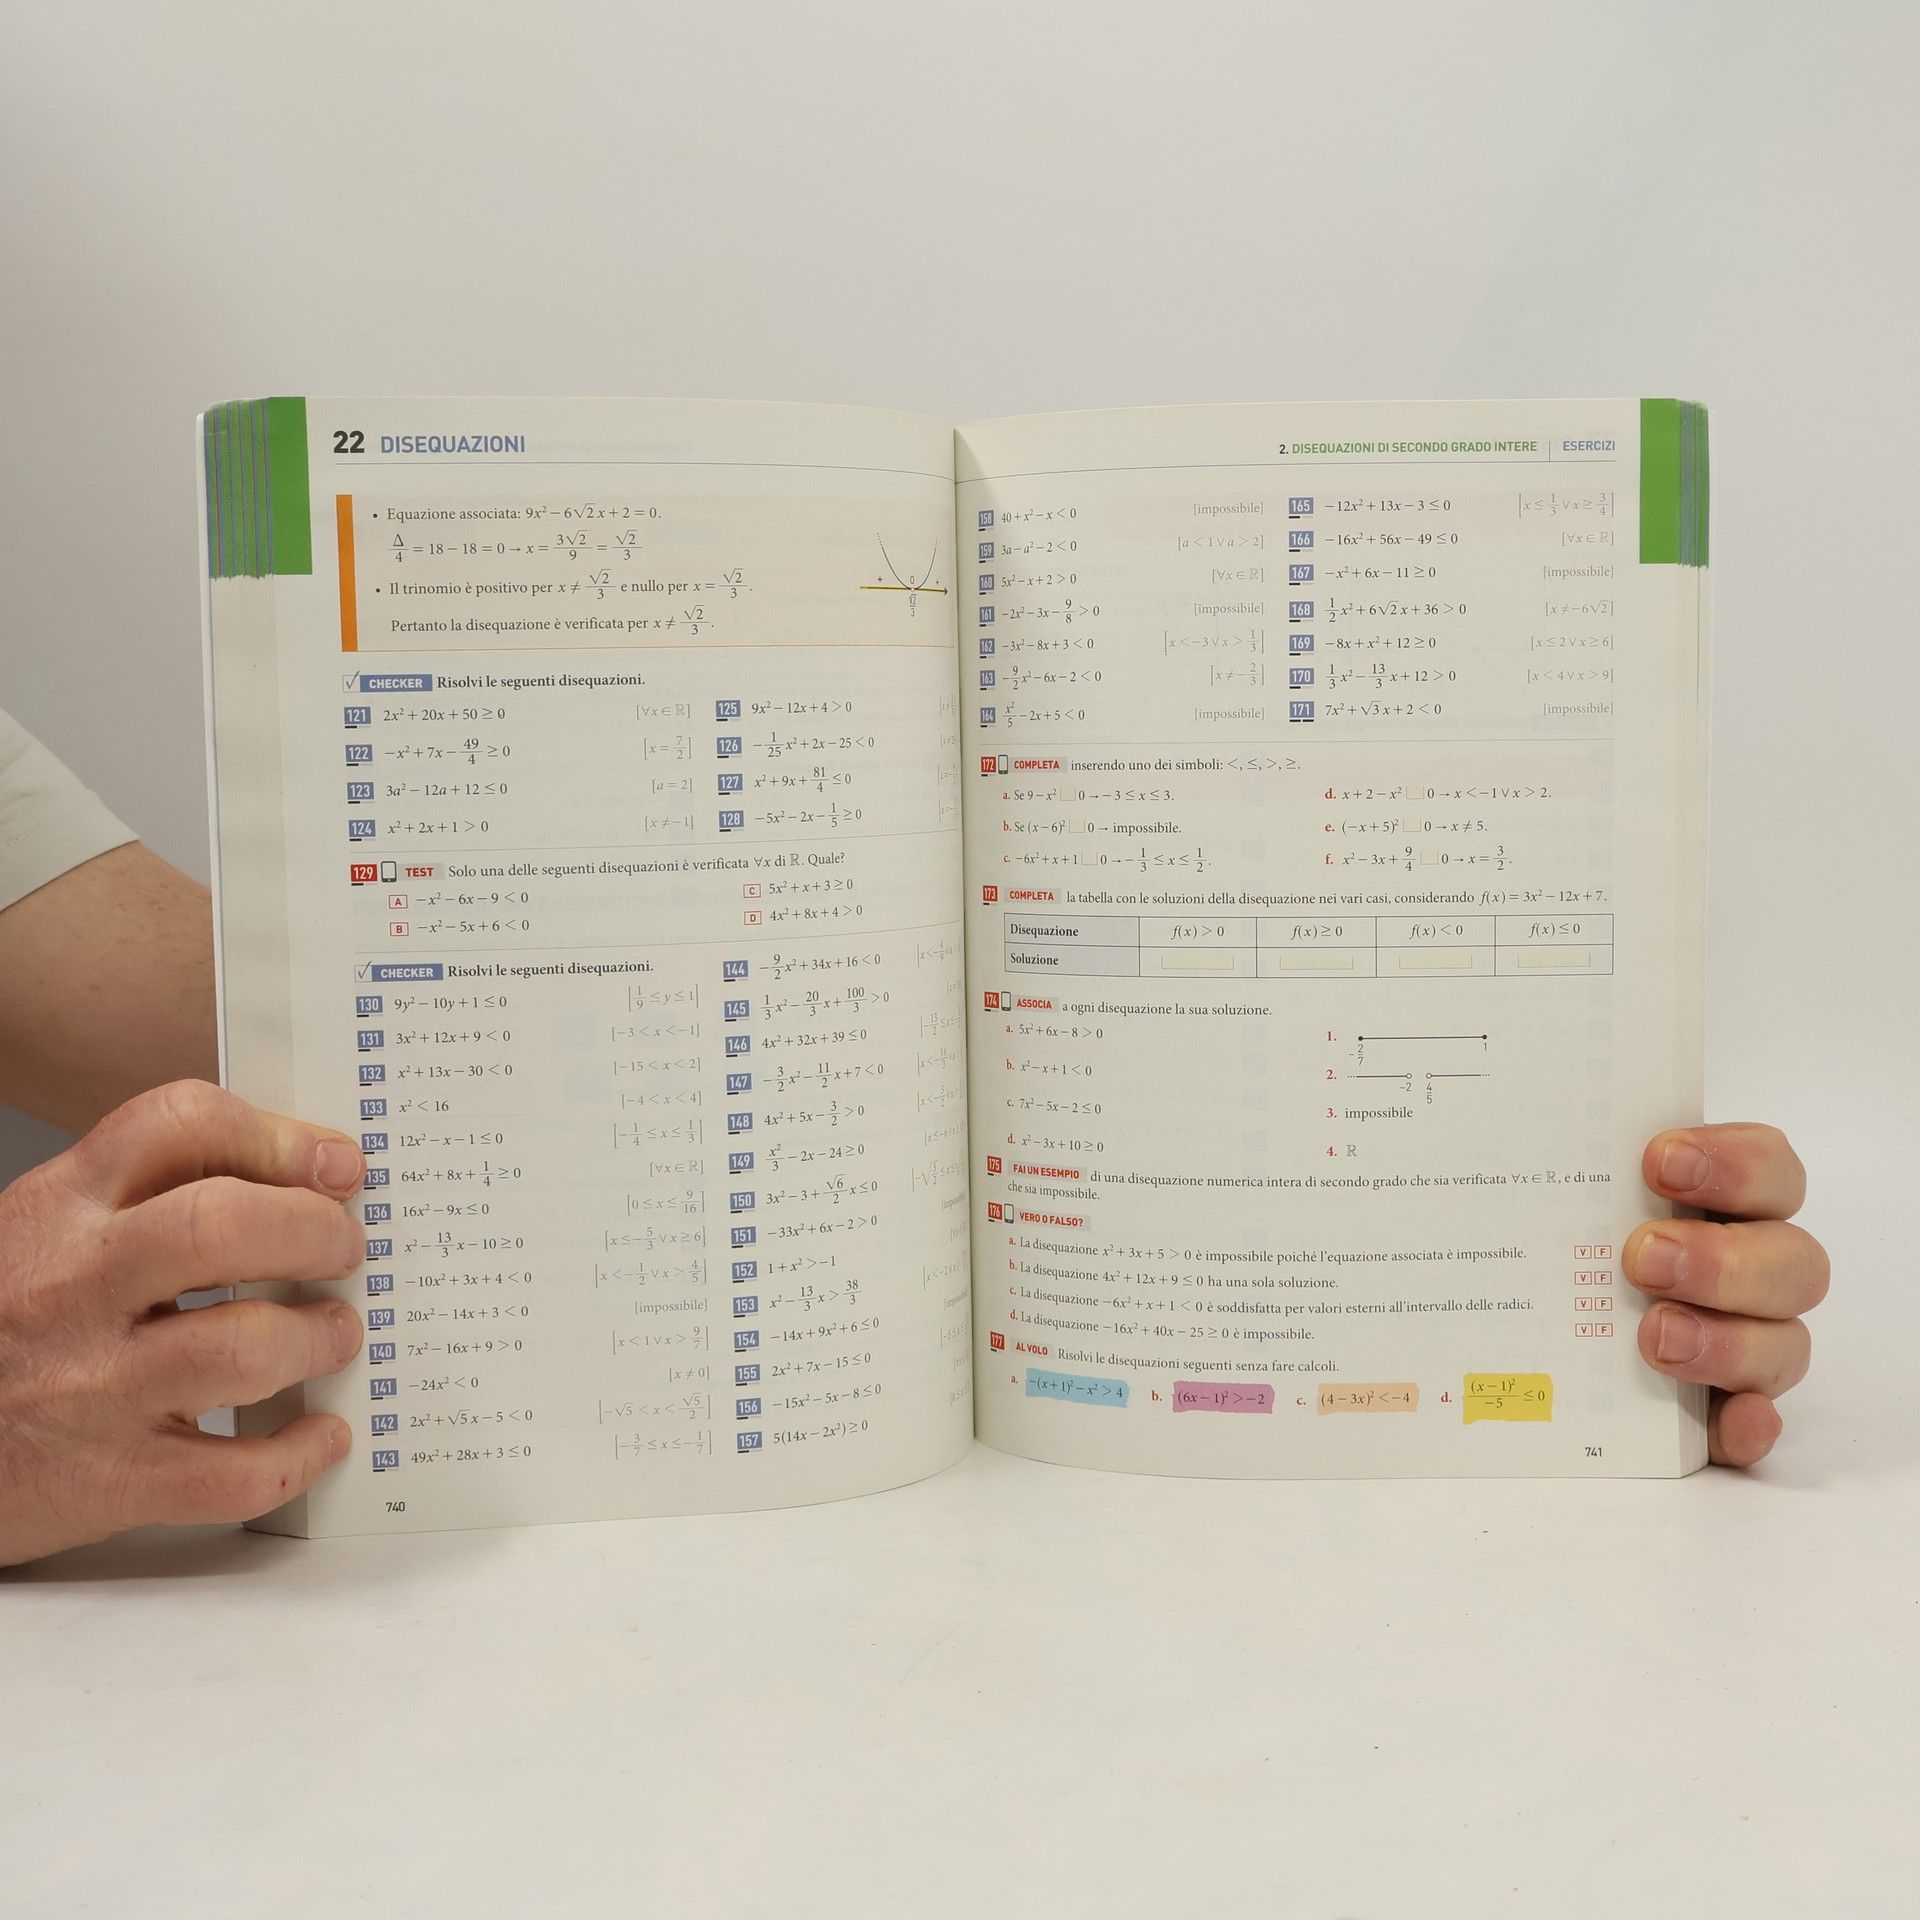 22 DISEQUAZIONI
• Equazione associata: 9x² − 6√2 x + 2 = 0.
Δ/4 = 18 − 18 = 0 → x = 3√2/9 = √2/3
• Il trinomio è positivo per x ≠ √2/3 e nullo per x = √2/3.
Pertanto la disequazione è verificata per x ≠ √2/3.
+ 0 +
√2/3
CHECKER Risolvi le seguenti disequazioni.
121 2x² + 20x + 50 ≥ 0 [∀x ∈ ℝ]
122 −x² + 7x − 49/4 ≥ 0 [x = 7/2]
123 3a² − 12a + 12 ≤ 0 [a = 2]
124 x² + 2x + 1 > 0 [x ≠ −1]
125 9x² − 12x + 4 > 0
126 −1/25 x² + 2x − 25 < 0
127 x² + 9x + 81/4 ≤ 0
128 −5x² − 2x − 1/5 ≥ 0
129 TEST Solo una delle seguenti disequazioni è verificata ∀x di ℝ. Quale?
A −x² − 6x − 9 < 0
B −x² − 5x + 6 < 0
C 5x² + x + 3 ≥ 0
D 4x² + 8x + 4 > 0
CHECKER Risolvi le seguenti disequazioni.
130 9y² − 10y + 1 ≤ 0 [1/9 ≤ y ≤ 1]
131 3x² + 12x + 9 < 0 [−3 < x < −1]
132 x² + 13x − 30 < 0 [−15 < x < 2]
133 x² < 16 [−4 < x < 4]
134 12x² − x − 1 ≤ 0 [−1/4 ≤ x ≤ 1/3]
135 64x² + 8x + 1/4 ≥ 0 [∀x ∈ ℝ]
136 16x² − 9x ≤ 0 [0 ≤ x ≤ 9/16]
137 x² − 13/3 x − 10 ≥ 0 [x ≤ −5/3 ∨ x ≥ 6]
138 −10x² + 3x + 4 < 0 [x < −1/2 ∨ x > 4/5]
139 20x² − 14x + 3 < 0 [impossibile]
140 7x² − 16x + 9 > 0 [x < 1 ∨ x > 9/7]
141 −24x² < 0 [x ≠ 0]
142 2x² + √5 x − 5 < 0 [−√5 < x < √5/2]
143 49x² + 28x + 3 ≤ 0 [−3/7 ≤ x ≤ −1/7]
144 −9/2 x² + 34x + 16 < 0
145 1/3 x² − 20/3 x + 100/3 > 0
146 4x² + 32x + 39 ≤ 0
147 −3/2 x² − 11/2 x + 7 < 0
148 4x² + 5x − 3/2 > 0
149 x²/3 − 2x − 24 ≥ 0
150 3x² − 3 + √6/2 x ≤ 0
151 −33x² + 6x − 2 > 0
152 1 + x² > −1
153 x² − 13/3 x > 38/3
154 −14x + 9x² + 6 ≤ 0
155 2x² + 7x − 15 ≤ 0
156 −15x² − 5x − 8 ≤ 0
157 5(14x − 2x²) ≥ 0
740
2. DISEQUAZIONI DI SECONDO GRADO INTERE | ESERCIZI
158 40 + x² − x < 0 [impossibile]
159 3a − a² − 2 < 0 [a < 1 ∨ a > 2]
160 5x² − x + 2 > 0 [∀x ∈ ℝ]
161 −2x² − 3x − 9/8 > 0 [impossibile]
162 −3x² − 8x + 3 < 0 [x < −3 ∨ x > 1/3]
163 −9/2 x² − 6x − 2 < 0 [x ≠ −2/3]
164 x²/5 − 2x + 5 < 0 [impossibile]
165 −12x² + 13x − 3 ≤ 0 [x ≤ 1/3 ∨ x ≥ 3/4]
166 −16x² + 56x − 49 ≤ 0 [∀x ∈ ℝ]
167 −x² + 6x − 11 ≥ 0 [impossibile]
168 1/2 x² + 6√2 x + 36 > 0 [x ≠ −6√2]
169 −8x + x² + 12 ≥ 0 [x ≤ 2 ∨ x ≥ 6]
170 1/3 x² − 13/3 x + 12 > 0 [x < 4 ∨ x > 9]
171 7x² + √3 x + 2 < 0 [impossibile]
172 COMPLETA inserendo uno dei simboli: <, ≤, >, ≥.
a. Se 9 − x² □ 0 → −3 ≤ x ≤ 3.
b. Se (x − 6)² □ 0 → impossibile.
c. −6x² + x + 1 □ 0 → −1/3 ≤ x ≤ 1/2.
d. x + 2 − x² □ 0 → x < −1 ∨ x > 2.
e. (−x + 5)² □ 0 → x ≠ 5.
f. x² − 3x + 9/4 □ 0 → x = 3/2.
173 COMPLETA la tabella con le soluzioni della disequazione nei vari casi, considerando f(x) = 3x² − 12x + 7.
Disequazione f(x) > 0 f(x) ≥ 0 f(x) < 0 f(x) ≤ 0
Soluzione
174 ASSOCIA a ogni disequazione la sua soluzione.
a. 5x² + 6x − 8 > 0
b. x² − x + 1 < 0
c. 7x² − 5x − 2 ≤ 0
d. x² − 3x + 10 ≥ 0
1. −2/7 1
2. −2 4/5
3. impossibile
4. ℝ
175 FAI UN ESEMPIO di una disequazione numerica intera di secondo grado che sia verificata ∀x ∈ ℝ, e di una
che sia impossibile.
176 VERO O FALSO?
a. La disequazione x² + 3x + 5 > 0 è impossibile poiché l'equazione associata è impossibile. V F
b. La disequazione 4x² + 12x + 9 ≤ 0 ha una sola soluzione. V F
c. La disequazione −6x² + x + 1 < 0 è soddisfatta per valori esterni all'intervallo delle radici. V F
d. La disequazione −16x² + 40x − 25 ≥ 0 è impossibile. V F
177 AL VOLO Risolvi le disequazioni seguenti senza fare calcoli.
a. −(x + 1)² − x² > 4 b. (6x − 1)² > −2 c. (4 − 3x)² < −4 d. (x − 1)²/−5 ≤ 0
741